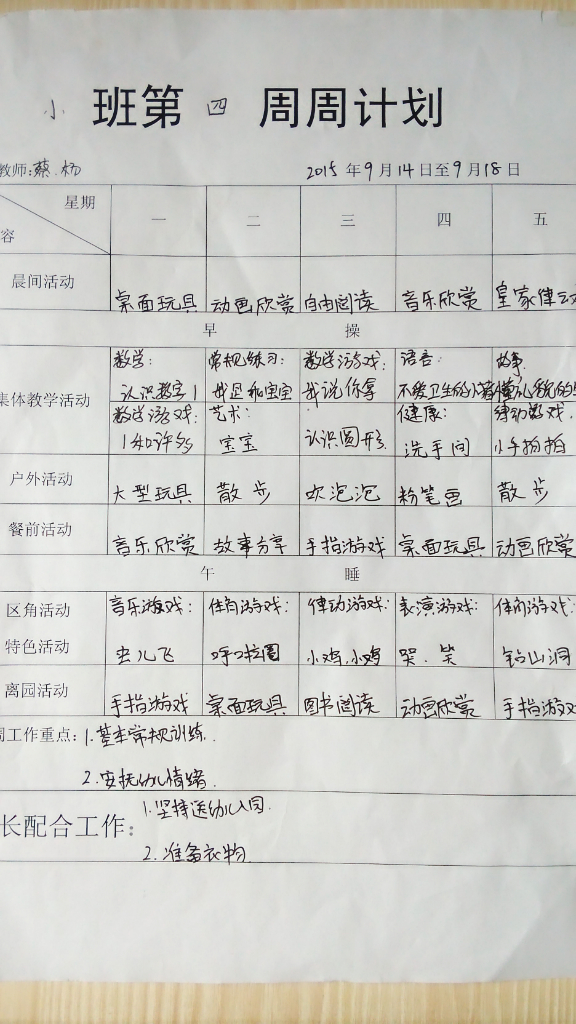 小 班第 四 周周计划
教师:蔡.杨 2015 年 9 月 14 日至 9 月 18 日
星期 一 二 三 四 五
容
晨间活动 桌面玩具 动画欣赏 自由阅读 音乐欣赏 皇家律动
早 操
数学: 常规练习: 数学游戏: 语言: 故事
集体教学活动 认识数字1 我是和宝宝 我说你拿 不爱卫生的小
数学游戏: 艺术: 健康: 律动游戏.
1和许多 宝宝 认识圆形 洗手间 小手拍拍
户外活动 大型玩具 散步 吹泡泡 粉笔画 散步
餐前活动 音乐欣赏 故事分享 手指游戏 桌面玩具 动画欣赏
午 睡
区角活动 音乐游戏: 体育游戏: 律动游戏: 表演游戏: 体育游戏:
特色活动 虫儿飞 呼啦圈 小鸡.小鸡 哭.笑 钻山洞
离园活动 手指游戏 桌面玩具 图书阅读 动画欣赏 手指游戏
周工作重点: 1.基本常规训练.
2.安抚幼儿情绪.
1.坚持送幼儿入园.
长配合工作:
2.准备衣物